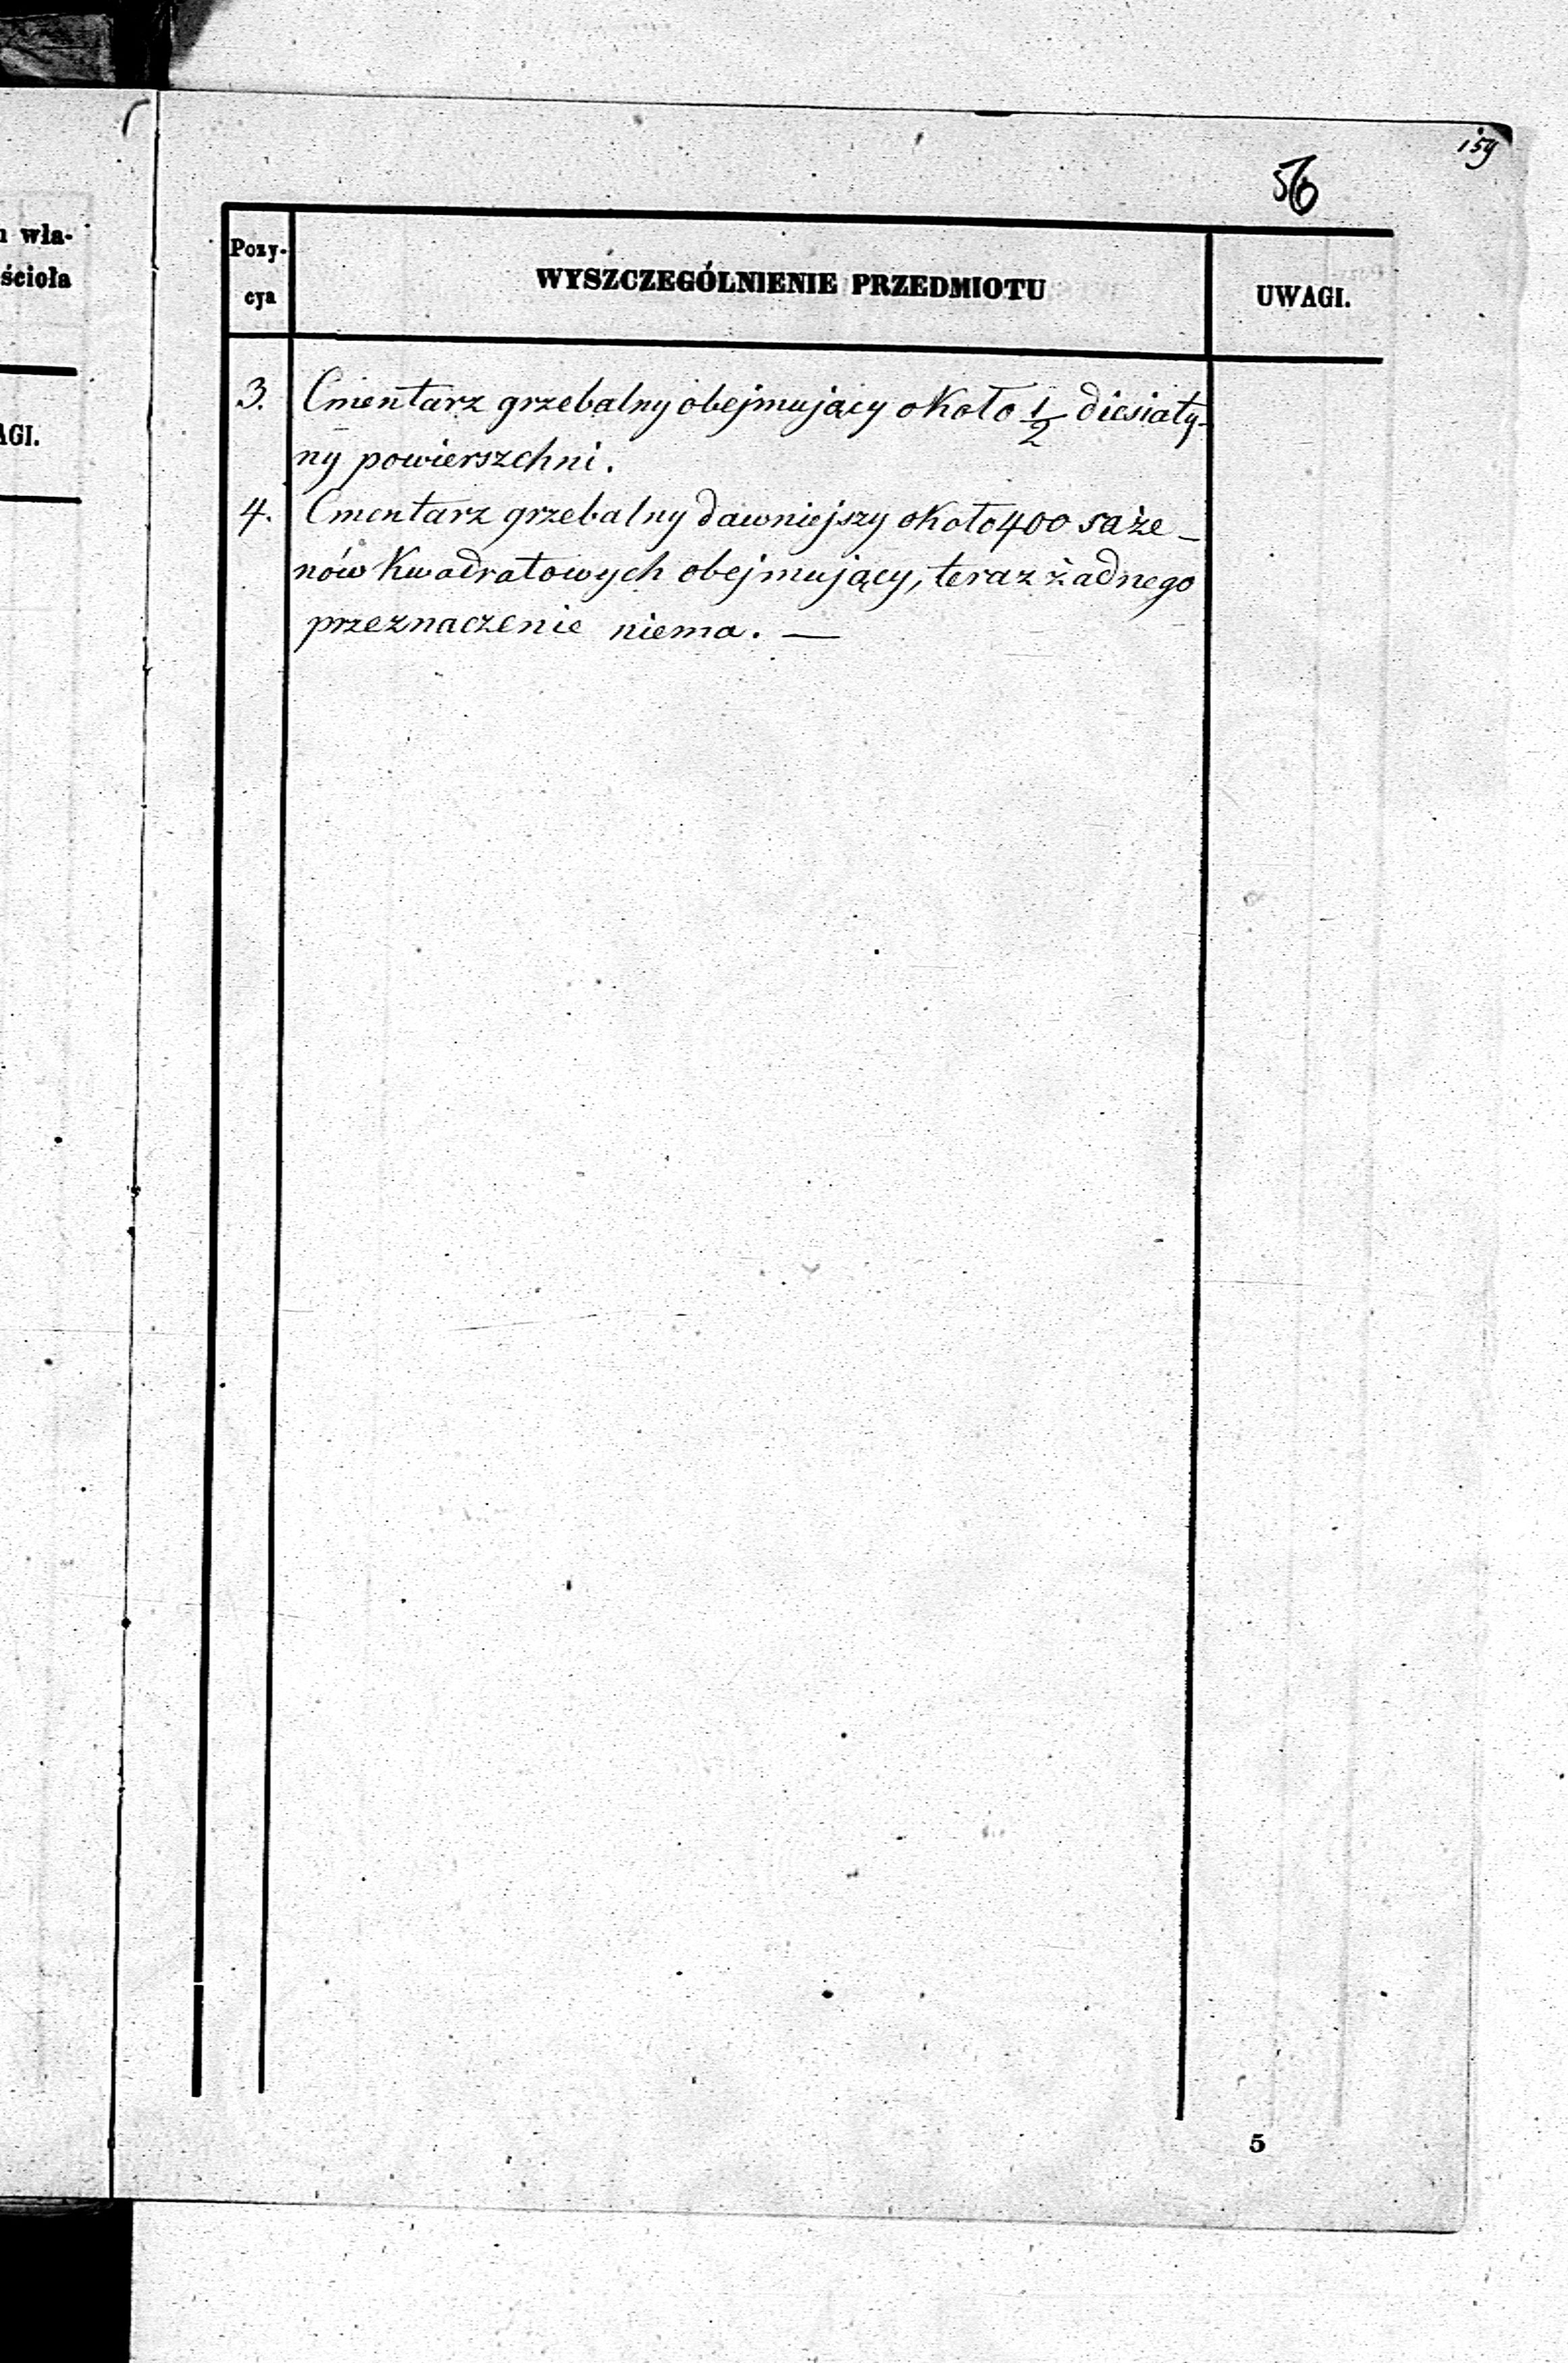 159
56
n wła-
ścioła
AGI.
Pozy-
cya
WYSZCZEGÓLNIENIE PRZEDMIOTU
UWAGI.
3. Cmentarz grzebalny obejmujący około 1/2 diesiaty-
ny powierszchni.
4. Cmentarz grzebalny dawniejszy około 400 saże-
nów kwadratowych obejmujący, teraz żadnego
przeznaczenie niema. —
5